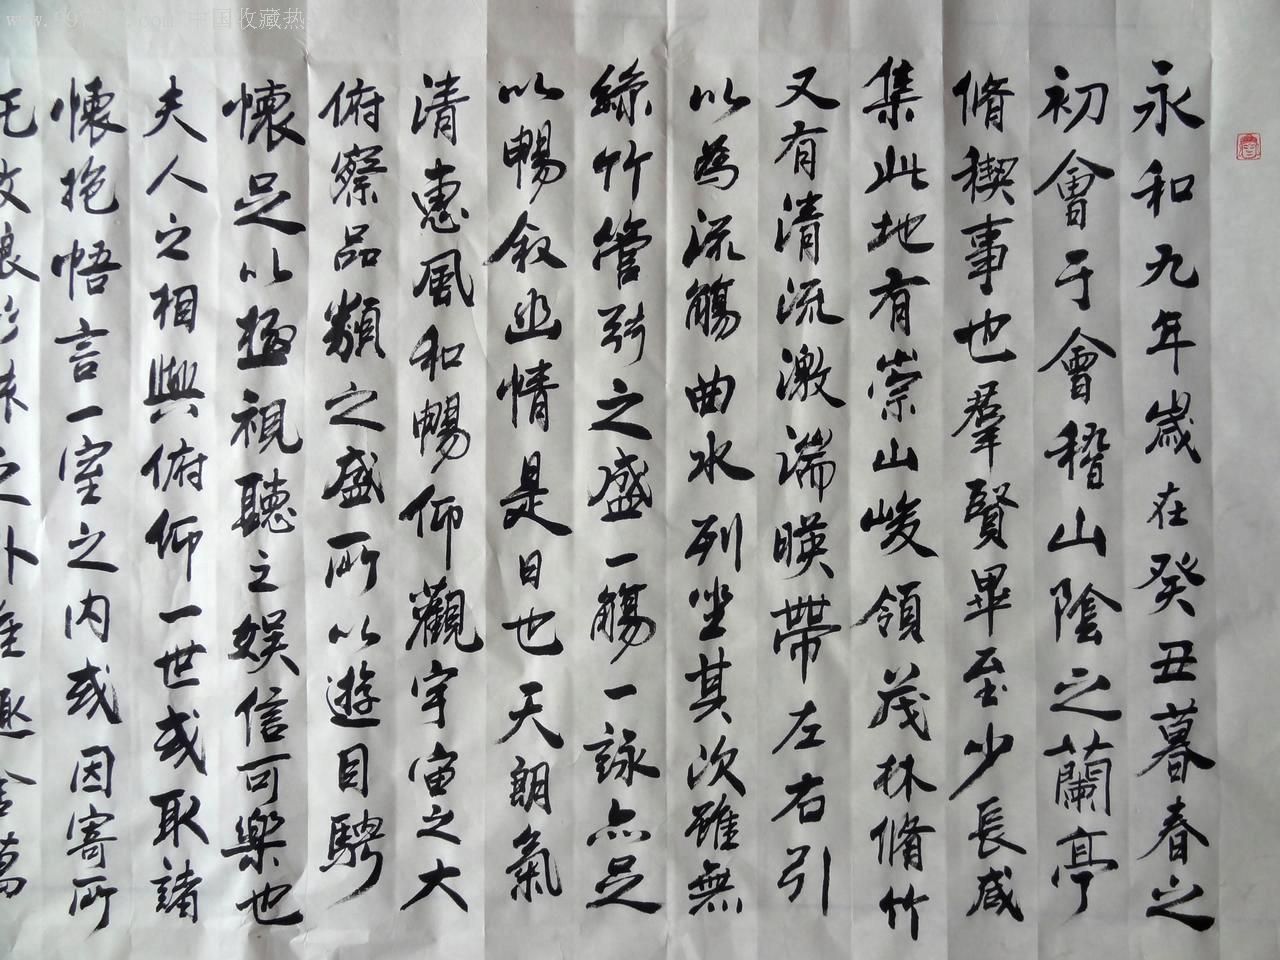 永和九年歲在癸丑暮春之
初會于會稽山陰之蘭亭
脩稧事也羣賢畢至少長咸
集此地有崇山峻領茂林脩竹
又有清流激湍暎帶左右引
以為流觴曲水列坐其次雖無
絲竹管弦之盛一觴一詠亦足
以暢敘幽情是日也天朗氣
清惠風和暢仰觀宇宙之大
俯察品類之盛所以遊目騁
懷足以極視聽之娛信可樂也
夫人之相與俯仰一世或取諸
懷抱悟言一室之內或因寄所
託放浪形骸之外雖趣舍萬
中国收藏热